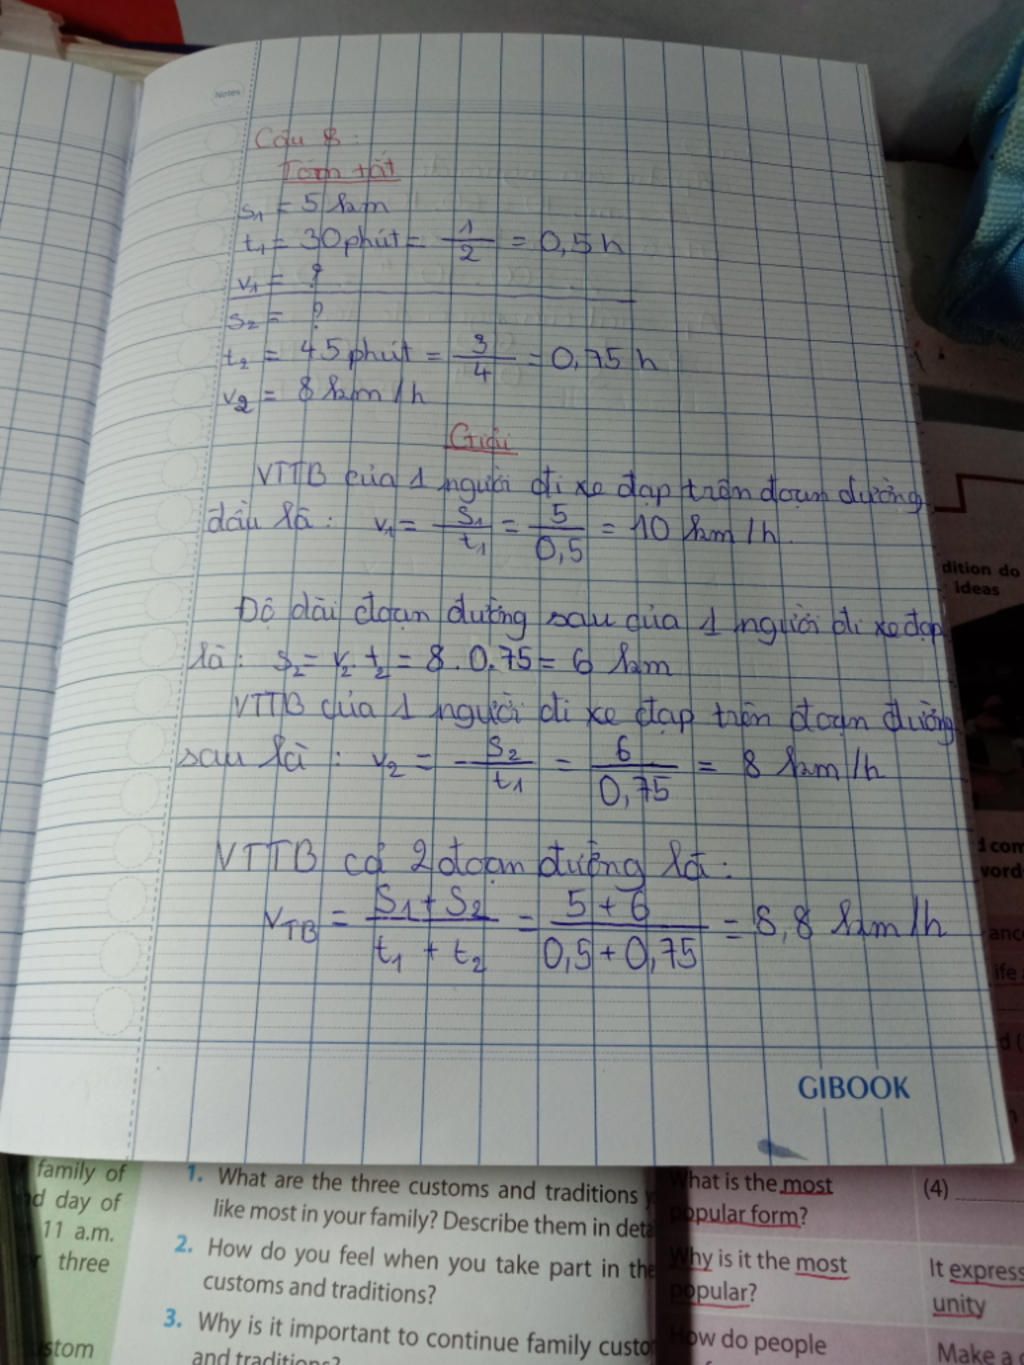 Notes
Câu 8:
Tóm tắt
s1 = 5 km
t1 = 30 phút = 1/2 = 0,5 h
v1 = ?
s2 = ?
t2 = 45 phút = 3/4 = 0,75 h
v2 = 8 km/h
Giải
VTTB của 1 người đi xe đạp trên đoạn đường
đầu là: v1 = s1/t1 = 5/0,5 = 10 km/h.
Độ dài đoạn đường sau của 1 người đi xe đạp
là: s2 = v2. t2 = 8 . 0,75 = 6 km
VTTB của 1 người đi xe đạp trên đoạn đường
sau là: v2 = s2/t1 = 6/0,75 = 8 km/h
VTTB cả 2 đoạn đường là:
vTB = S1 + S2/t1 + t2 = 5 + 6/0,5 + 0,75 = 8,8 km/h
GIBOOK
family of
day of
11 a.m.
three
1. What are the three customs and traditions
like most in your family? Describe them in
2. How do you feel when you take part in the
customs and traditions?
3. Why is it important to continue family
and traditions?
What is the most
popular form?
(4)
Why is it the most
popular?
It express
unity
How do people
Make a
dition do
ideas